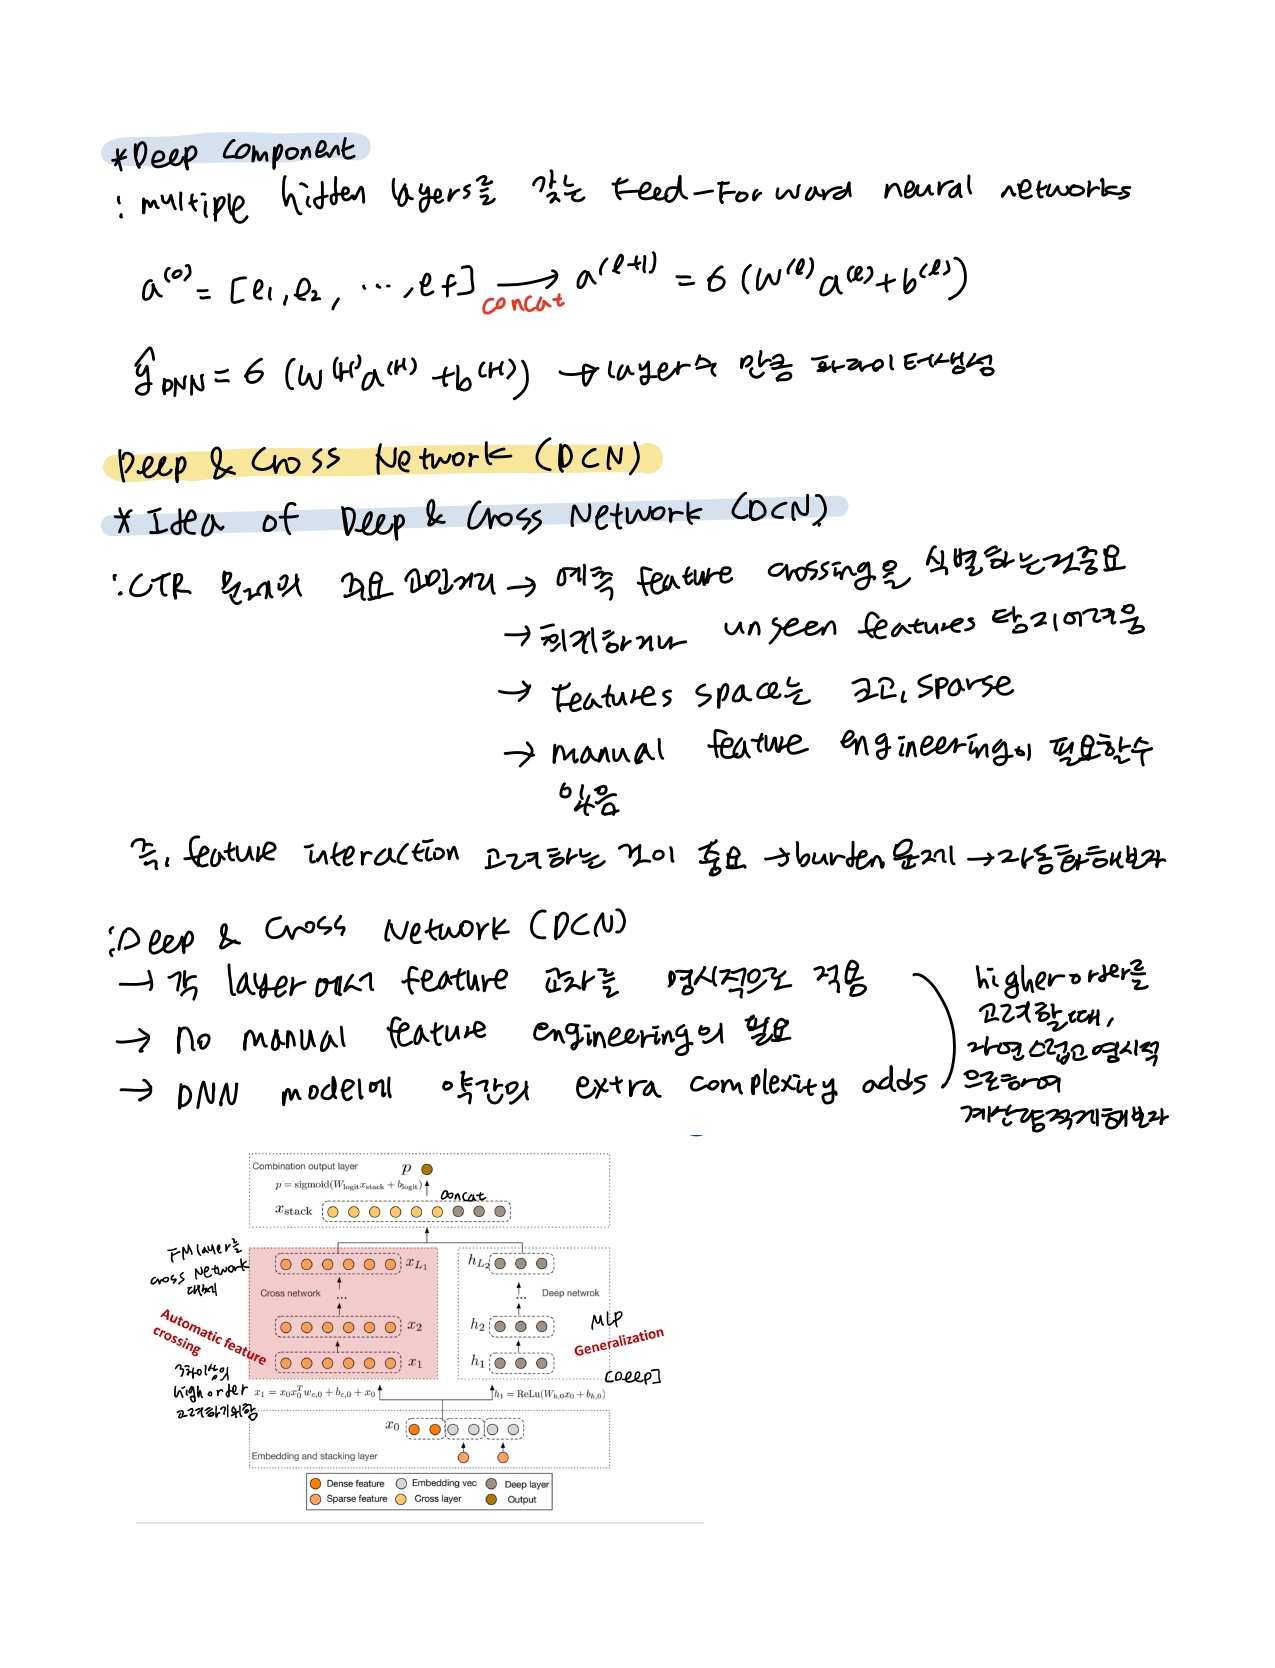 *Deep Component
: multiple hidden layers를 갖는 Feed-Forward neural networks
a⁽⁰⁾ = [e₁, e₂, ⋯, ef] → concat a⁽ℓ⁺¹⁾ = σ (W⁽ℓ⁾a⁽ℓ⁾ + b⁽ℓ⁾)
ŷ DNN = σ (W⁽ᴴ⁾a⁽ᴴ⁾ + b⁽ᴴ⁾) → layer수 만큼 파라미터생성
Deep & Cross Network (DCN)
* Idea of Deep & Cross Network (DCN)
: CTR 문제의 주요 고민거리 → 예측 feature crossing을 식별하는것중요
→ 희귀하거나 unseen features 탐지어려움
→ Features space는 크고, sparse
→ manual feature engineering이 필요할수
있음
즉, feature interaction 고려하는 것이 중요 → burden 문제 → 자동화해보자
: Deep & Cross Network (DCN)
→ 각 layer에서 feature 교차를 명시적으로 적용
→ No manual feature engineering의 필요
→ DNN model에 약간의 extra complexity adds
higher order를
고려할때,
자연스럽고 명시적
으로하여
계산량적게해보자
Combination output layer p
p = sigmoid(W_logit x_stack + b_logit)
concat
x_stack
FM layer를
cross Network
대체
x_L₁
h_L₂
Cross network ...
... Deep netwrok
x₂
h₂
MLP
Generalization
Automatic feature
crossing
x₁
h₁
[Deep]
3차이상의
high order
고려하기위함
x₁ = x₀x₀ᵀw_c,₀ + b_c,₀ + x₀
h₁ = ReLu(W_h,₀x₀ + b_h,₀)
x₀
Embedding and stacking layer
Dense feature Embedding vec Deep layer
Sparse feature Cross layer Output